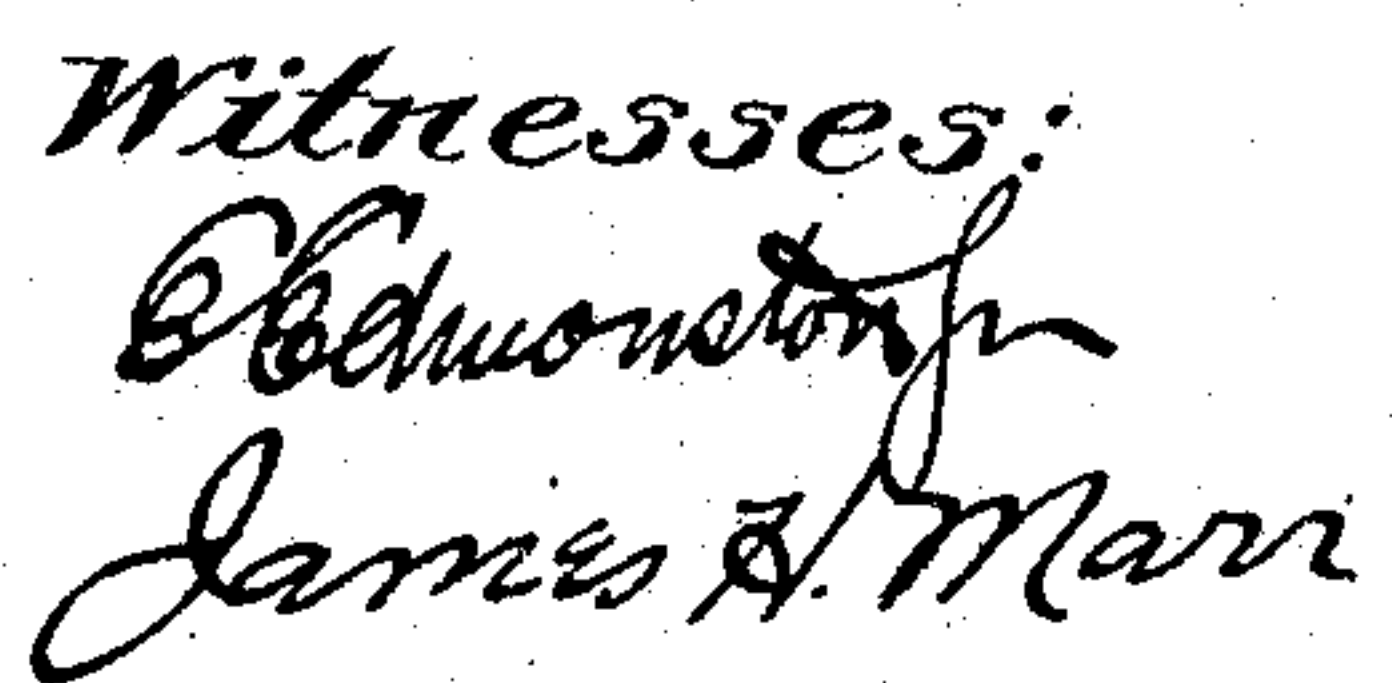 Witnesses:
E Edmonston Jr
James H. Marr